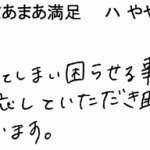 まあまあ満足 ハ やや
てしまい困らせる事
応していただき
います。